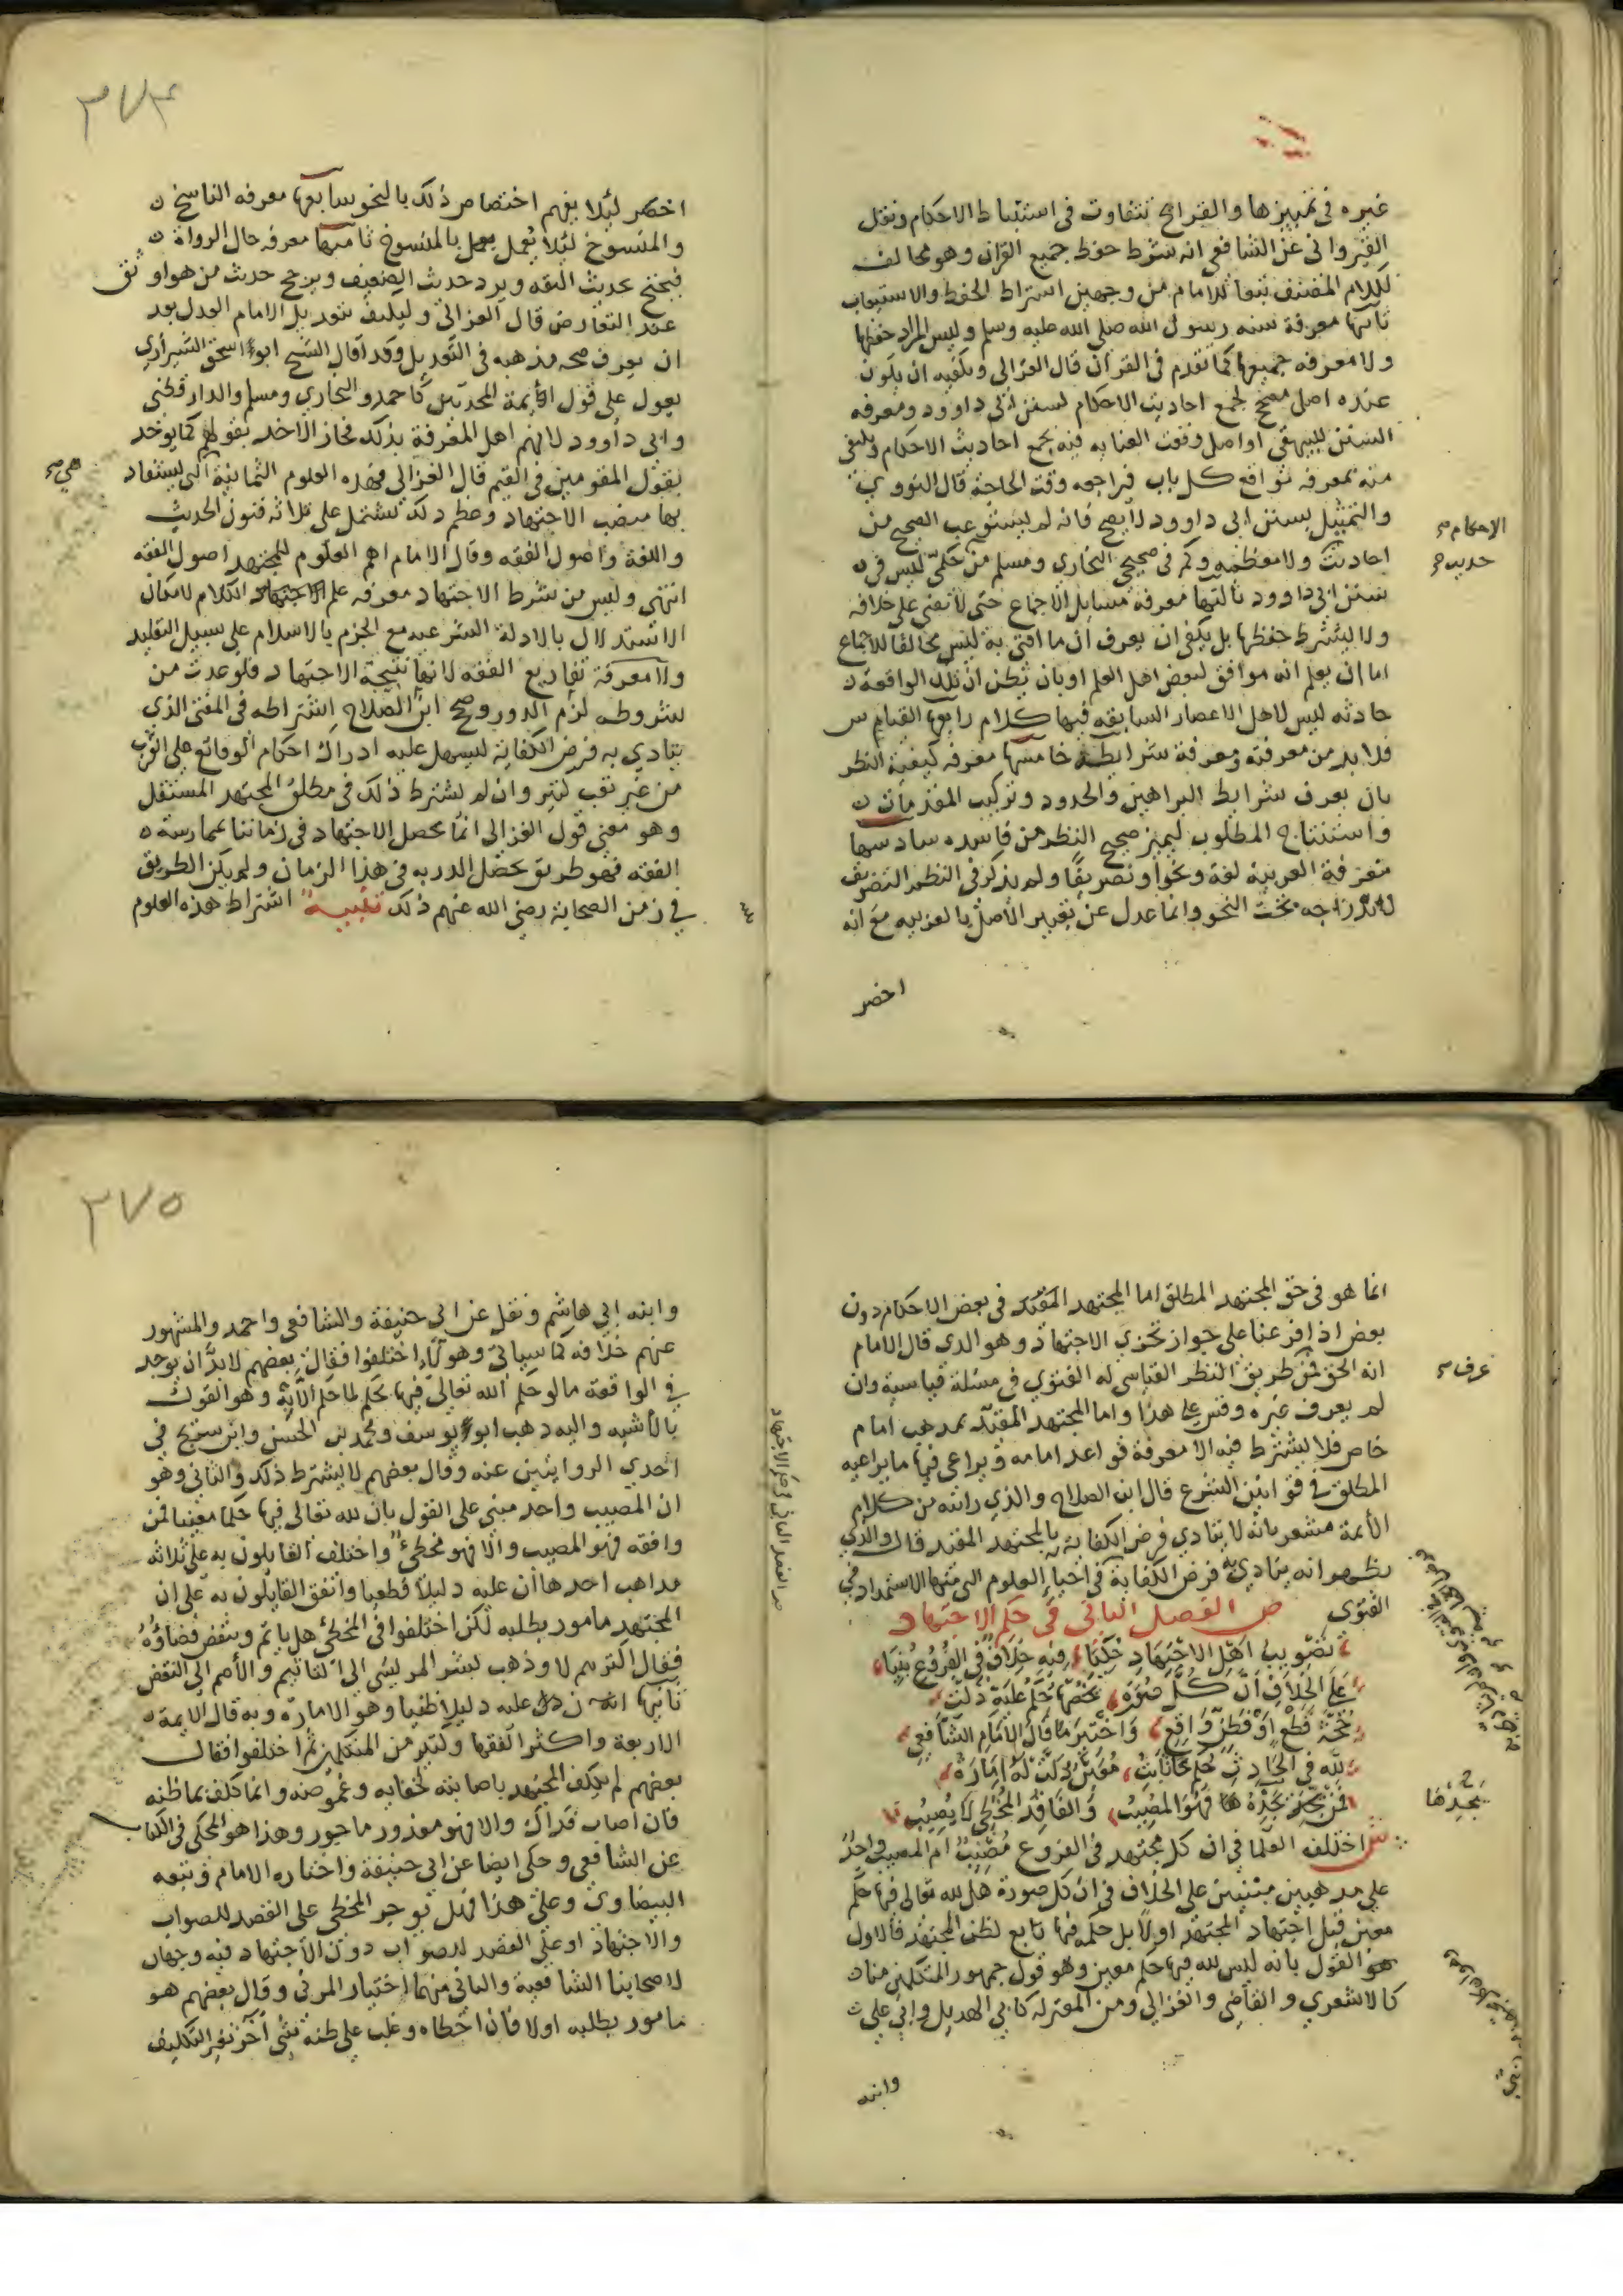 غيره في تمييزها والقرايح تتفاوت في استنباط الاحكام ونقل
القيرواني عن الشافعي انه شرط حفظ جميع القران وهو مخالف
لكلام المصنف تبعا للامام من وجهين اشتراط الحفظ والاستيعاب
ثانيها معرفة سنه رسول الله صلى الله عليه وسلم وليس المراد حفظها
ولا معرفه جميعها كما تقدم في القران قال الغزالي ويكفيه ان يكون
عنده اصل مصحح لجمع احاديث الاحكام كسنن ابي داوود ومعرفه
السنن للبيهقي او اصل وقعت العنايه فيه بجمع احاديث الاحكام ويكفي
منه بمعرفه مواقع كل باب فيراجعه وقت الحاجة قال النووي
والتمثيل بسنن ابي داوود لا يصح فانه لم يستوعب الصحيح من
الاحكام صح
احاديث ولا معظمه وكم في صحيحي البخاري ومسلم من حكمي ليس في
حديث صح
سنن ابي داوود ثالثها معرفة مسايل الاجماع حتى لا يفتي على خلافه
ولا يشترط حفظها بل يكفي ان يعرف ان ما افتى به ليس مخالفا للاجماع
اما ان يعلم انه موافق لبعض اهل العلم او بان يظن ان تلك الواقعة
حادثه ليس لاهل الاعصار السابقه فيها كلام رابعها القياس
فلا بد من معرفته ومعرفة شرايطه خامسها معرفه كيفية النظر
بان يعرف شرايط البراهين والحدود وتركيب المقدمات
واستنتاج المطلوب ليميز صحيح النظر من فاسده سادسها
معرفة العربية لغة ونحوا وتصريفا ولم يذكر في النظم التصريف
لاندراجه تحت النحو وانما عدل عن تعبير الاصل بالعربيه مع انه
اخصر
٣٧٤
اخصر لئلا يفهم اختصاص ذلك بالنحو سابعها معرفه الناسخ
والمنسوخ لئلا يعمل بالمنسوخ ثامنها معرفه حال الرواة
فيحتج بحديث الثقه ويرد حديث الضعيف ويرجح حديث من هو اوثق
عند التعارض قال الغزالي وليكتف بتعديل الامام العدل بعد
ان يعرف صحه مذهبه في التعديل وقد قال الشيخ ابو اسحق الشيرازي
يعول على قول ايمة المحدثين كاحمد والبخاري ومسلم والدارقطني
وابي داوود لانهم اهل المعرفة بذلك فجاز الاخذ بقولهم كما يوخذ
بقول المقومين في القيم قال الغزالي فهذه العلوم الثمانية التي يستفاد
هي صح
بها منصب الاجتهاد ومعظم ذلك تشتمل على ثلاثه فنون الحديث
واللغة واصول الفقه وقال الامام اهم العلوم للمجتهد اصول الفقه
انتهى وليس من شرط الاجتهاد معرفه علم الكلام لامكان
الاستدلال بالادلة الشرعيه مع الجزم بالاسلام على سبيل التقليد
ولا معرفة تفاريع الفقه لانها نتيجة الاجتهاد فلو عدت من
شروطه لزم الدور وصحح ابن الصلاح اشتراطه في المفتي الذي
يتادي به فرض الكفاية ليسهل عليه ادراك احكام الوقائع على القرب
من غير تعب كثير وان لم نشترط ذلك في مطلق المجتهد المستقل
وهو معنى قول الغزالي انما يحصل الاجتهاد في زماننا بممارسة
الفقه فهو طريق تحصيل الدربه في هذا الزمان ولم يكن الطريق
في زمن الصحابة رضي الله عنهم ذلك تنبيه اشتراط هذه العلوم
انما هو في حق المجتهد المطلق اما المجتهد المقيد في بعض الاحكام دون
بعض اذا فرعنا على جواز تجزي الاجتهاد وهو الذي قال الامام
انه الحق فمن طريق النظر القياسي له الفتوي في مسئلة قياسية وان
عرف صح
لم يعرف غيره وقس على هذا واما المجتهد المقيد بمذهب امام
خاص فلا يشترط فيه الا معرفة قواعد امامه ويراعي فيها ما يراعيه
المطلق في قوانين الشرع قال ابن الصلاح والذي رايته من كلام
الأيمة مشعر بانه لا يتادي فرض الكفاية بالمجتهد المقيد قال والذي
يظهر انه يتادي به فرض الكفاية في احياء العلوم التي منها الاستمداد في
الفتوى ص الفصل الثاني في حكم الاجتهاد
تصويب اهل الاجتهاد حكيا فيه خلاف في الفروع بنيا
على الخلاف ان كل صورة تخصها حكم عليه دلت
حجة قطع او فظن واقع واختير ما قال الامام الشافعي
لله في الحادث حكم ثابت معين دلت له امارة
فمن يجد فهو المصيب والفاقد المخطي لا يصيب
يجدها
ش اختلف العلما في ان كل مجتهد في الفروع مصيب ام المصيب واحد
على مذهبين مبنيين على الخلاف في ان كل صورة هل لله تعالى فيها حكم
معين قبل اجتهاد المجتهد او لا بل حكمه فيها تابع لظن المجتهد فالاول
هو القول بانه ليس لله فيها حكم معين وهو قول جمهور المتكلمين منا
كالاشعري والقاضي والغزالي ومن المعتزله كابي الهديل وابي علي
وابنه
ص الفصل الثاني في حكم الاجتهاد
٣٧٥
وابنه ابي هاشم ونقل عن ابي حنيفة والشافعي واحمد والمشهور
عنهم خلافه كما سياتي وهولاء اختلفوا فقال بعضهم لا بد ان يوجد
في الواقعة ما لو حكم الله تعالى فيها بحكم لما حكم الا به وهو القول
بالاشبه واليه ذهب ابو يوسف ومحمد بن الحسن وابن سريج في
احدي الروايتين عنه وقال بعضهم لا يشترط ذلك والثاني وهو
ان المصيب واحد مبني على القول بان لله تعالى فيها حكما معينا فمن
وافقه فهو المصيب والا فهو مخطئ واختلف القايلون به على ثلاثه
مذاهب احدها ان عليه دليلا قطعيا واتفق القايلون به على ان
المجتهد مامور بطلبه لكن اختلفوا في المخطئ هل ياثم وينقض قضاؤه
فقال اكثرهم لا وذهب بشر المريسي الى التاثيم والاصم الى النقض
ثانيها ان عليه دليلا ظنيا وهو الامارة وبه قال الايمة
الاربعة واكثر الفقها وكثير من المتكلمين ثم اختلفوا فقال
بعضهم لم يكلف المجتهد باصابته لخفايه وغموضه وانما كلف بما ظنه
فان اصاب فذاك والا فهو معذور ماجور وهذا هو المحكي في الكتاب
عن الشافعي وحكي ايضا عن ابي حنيفة واختاره الامام وتبعه
البيضاوي وعلى هذا فهل يوجر المخطي على القصد للصواب
والاجتهاد او على القصد للصواب دون الاجتهاد فيه وجهان
لاصحابنا الشافعية والثاني منهما اختيار المزني وقال بعضهم هو
مامور بطلبه اولا فان اخطاه وغلب على ظنه شي اخر تغير التكليف